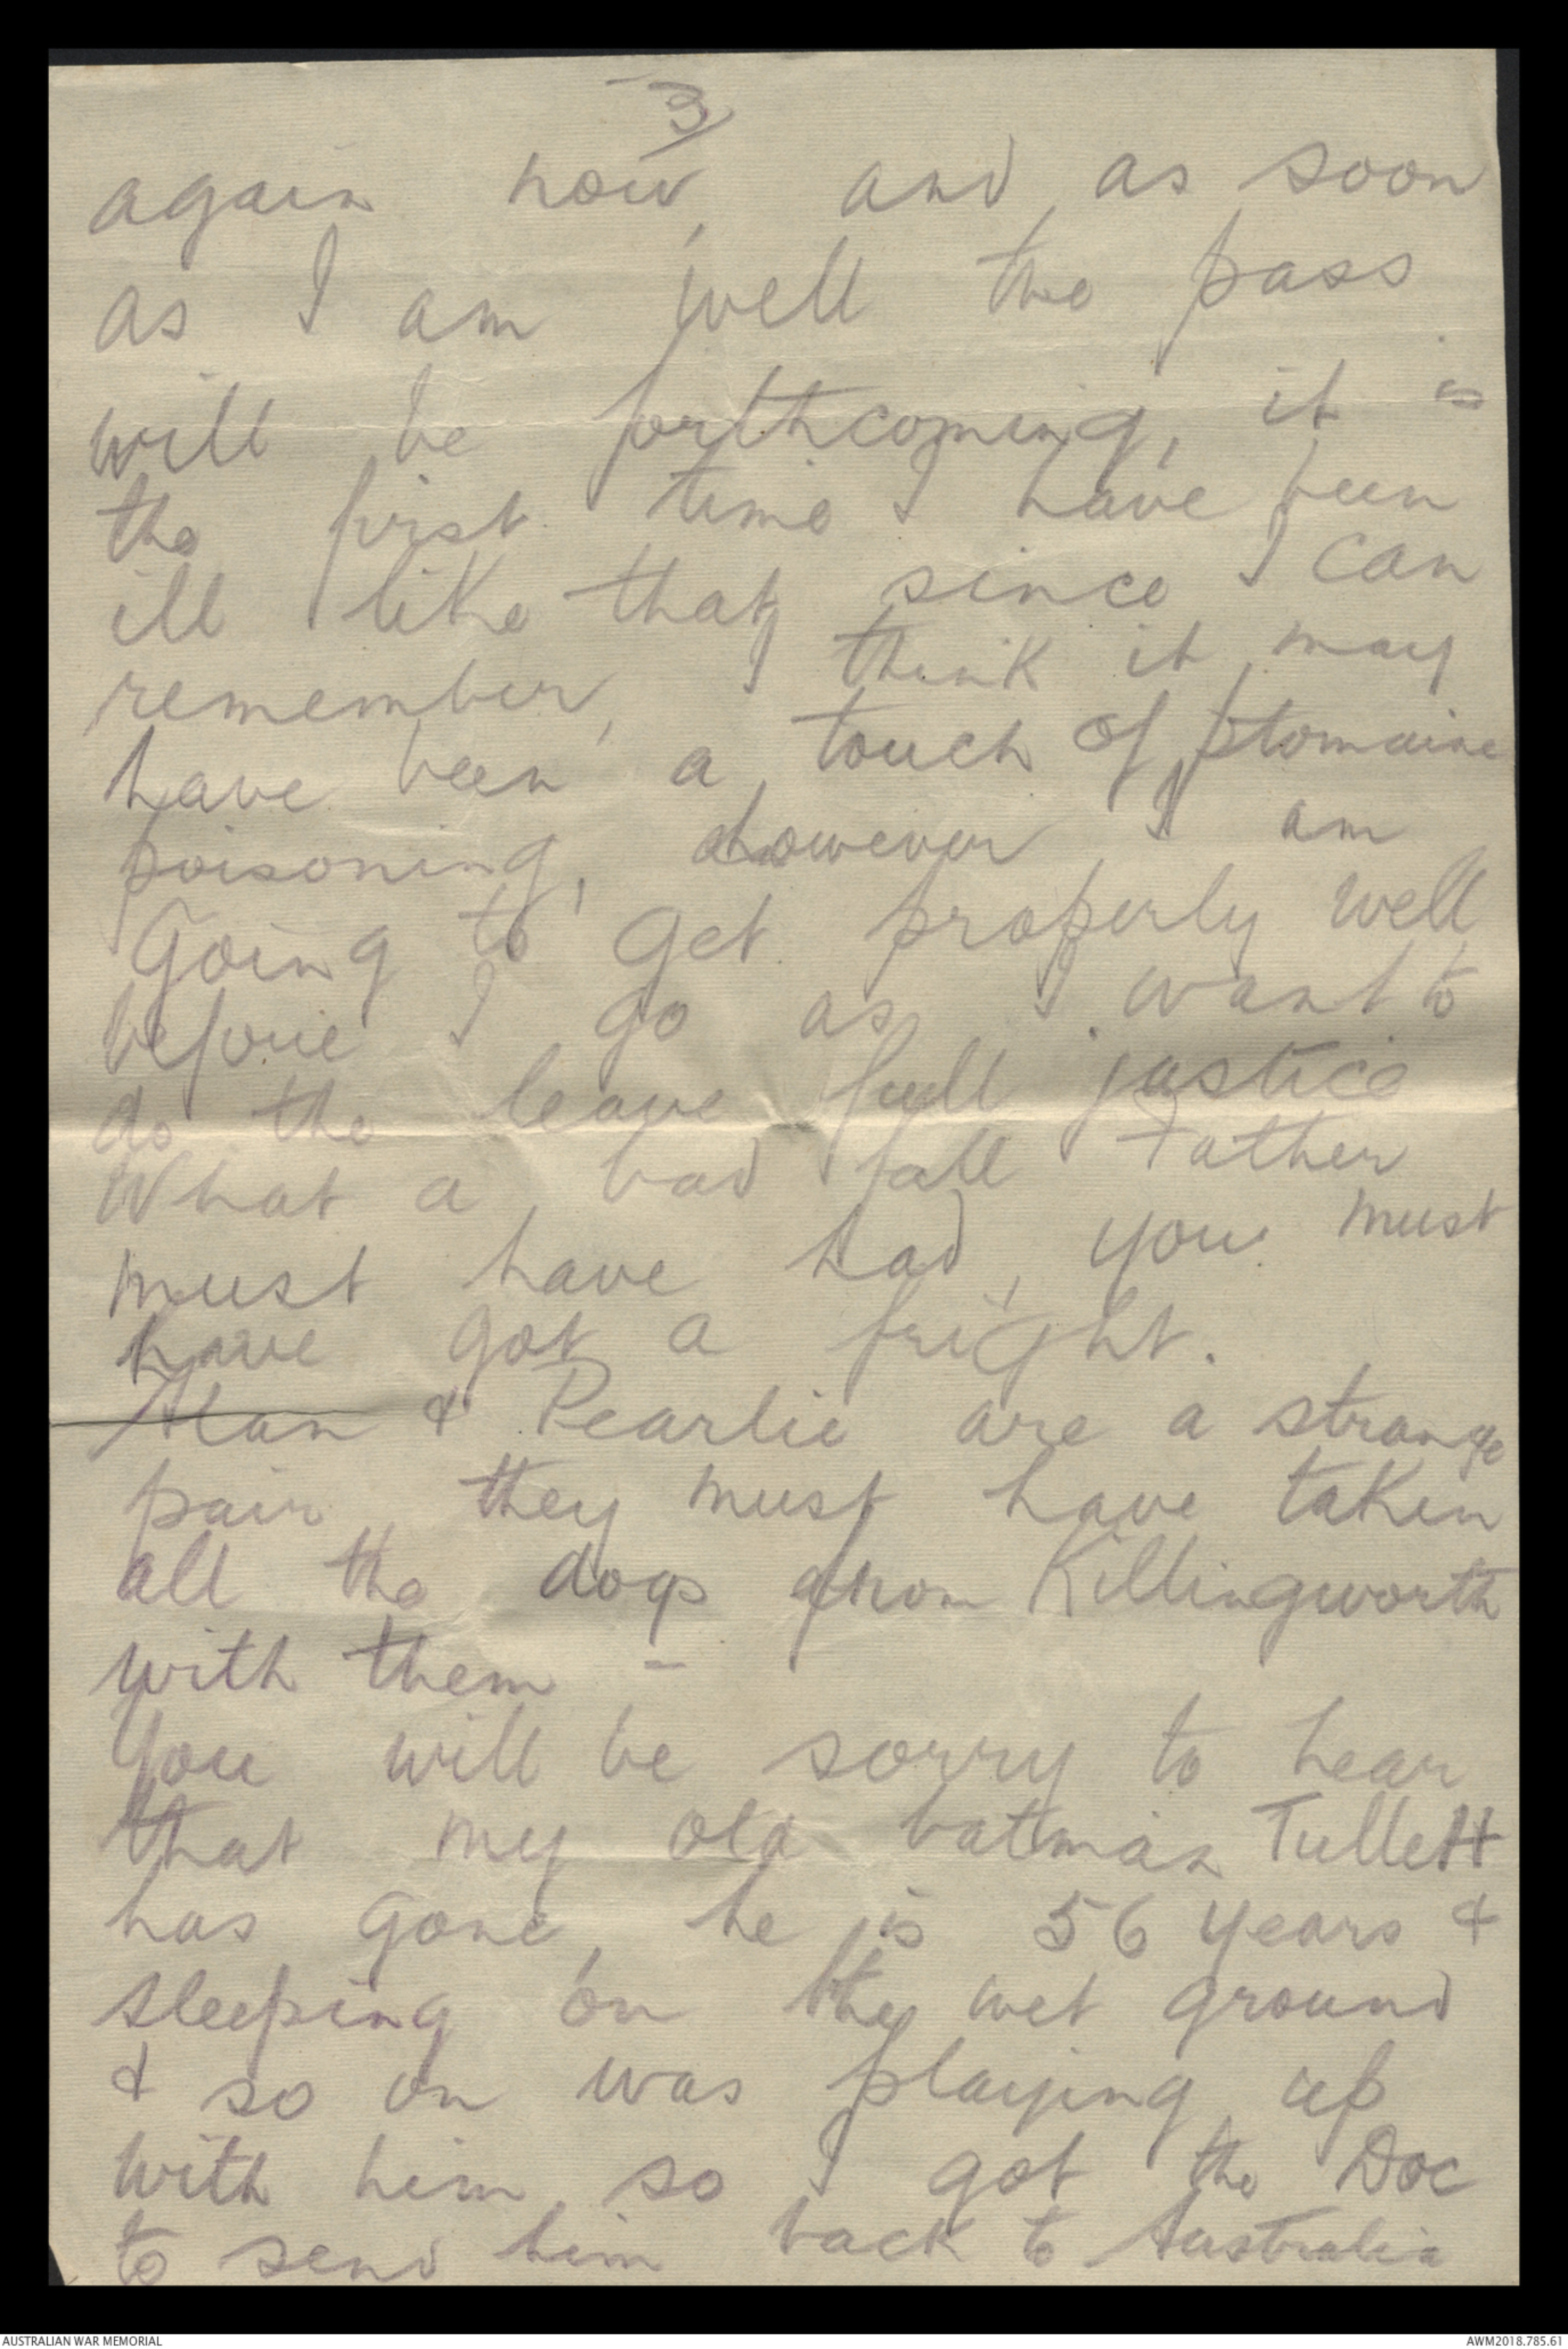 3
again now, and as soon
as I am well the pass
will be forthcoming, it is
the first time I have been
ill like that since I can
remember, I think it may
have been a touch of ptomaine
poisoning, however I am
Going to get properly well
before I go as I want to
do the leave full justice
What a bad fall Father
must have had, you must
have got a fright.
Alan & Pearlie are a strange
pair they must have taken
all the dogs from Killingworth
with them -
You will be sorry to hear
that my old batman Tullett
has gone, he is 56 years &
sleeping on the wet ground
& so on was playing up
with him so I got the Doc
to send him back to Australia
AUSTRALIAN WAR MEMORIAL
AWM2018.785.61